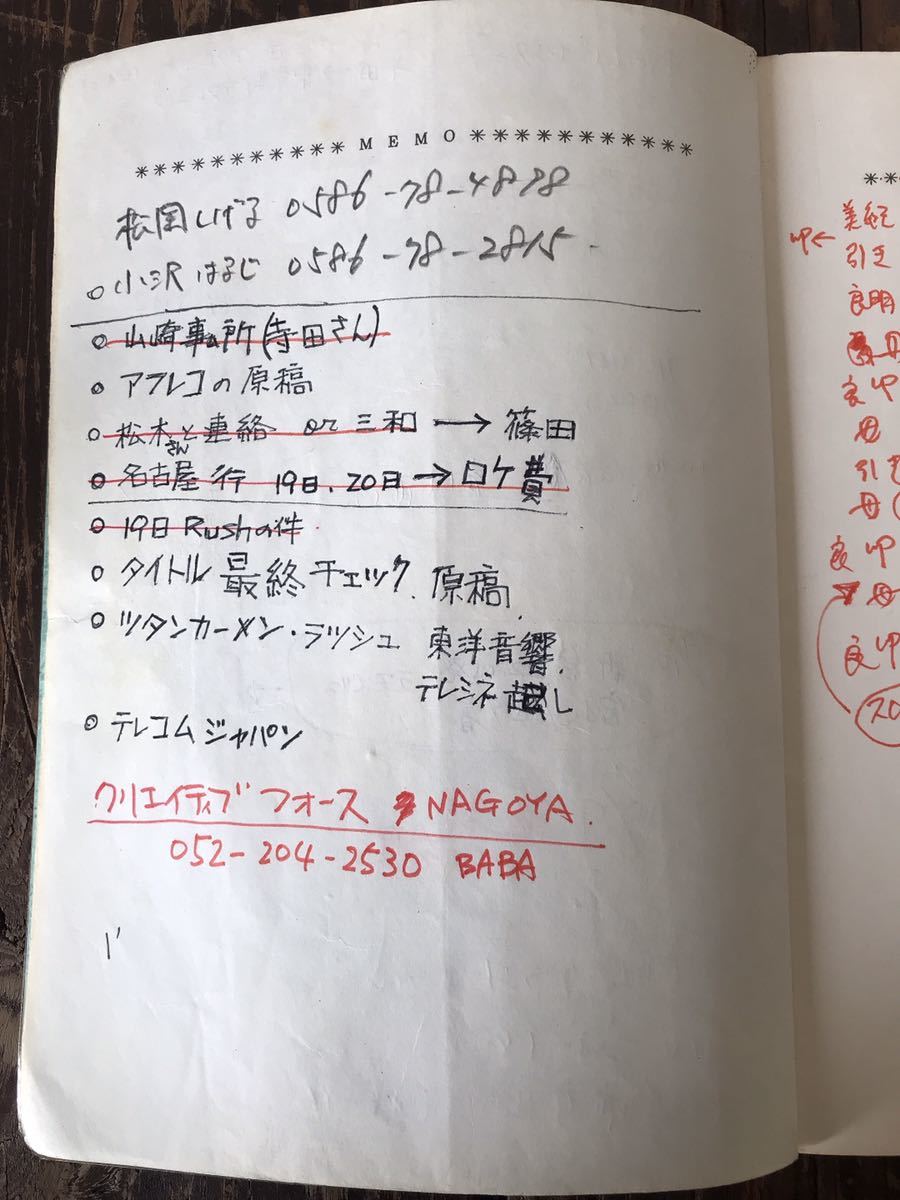 *********** MEMO ***********
松岡しげる 0586-78-4878
○ 小沢はるじ 0586-78-2815.
○ 山崎事ム所(寺田さん)
○ アフレコの原稿
○ 松木さんと連絡 or 三和 → 篠田
○ 名古屋行 19日、20日 → ロケ費
○ 19日 Rushの件
○ タイトル 最終チェック、原稿
○ ツタンカーメン・ラッシュ 東洋音響、
テレシネ 起し
◎ テレコムジャパン
クリエイティブ フォース NAGOYA.
052-204-2530 BABA
美紀
引き
良明
良 印
母
引き
母
良 印
母
良 印